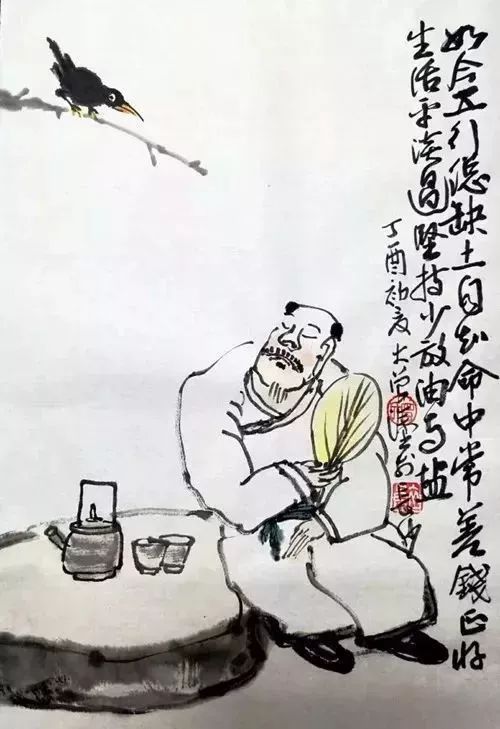 如今五行總缺土自知命中常差錢正好
生活平淡過堅持少放油与盐
丁酉初夏大
長沙